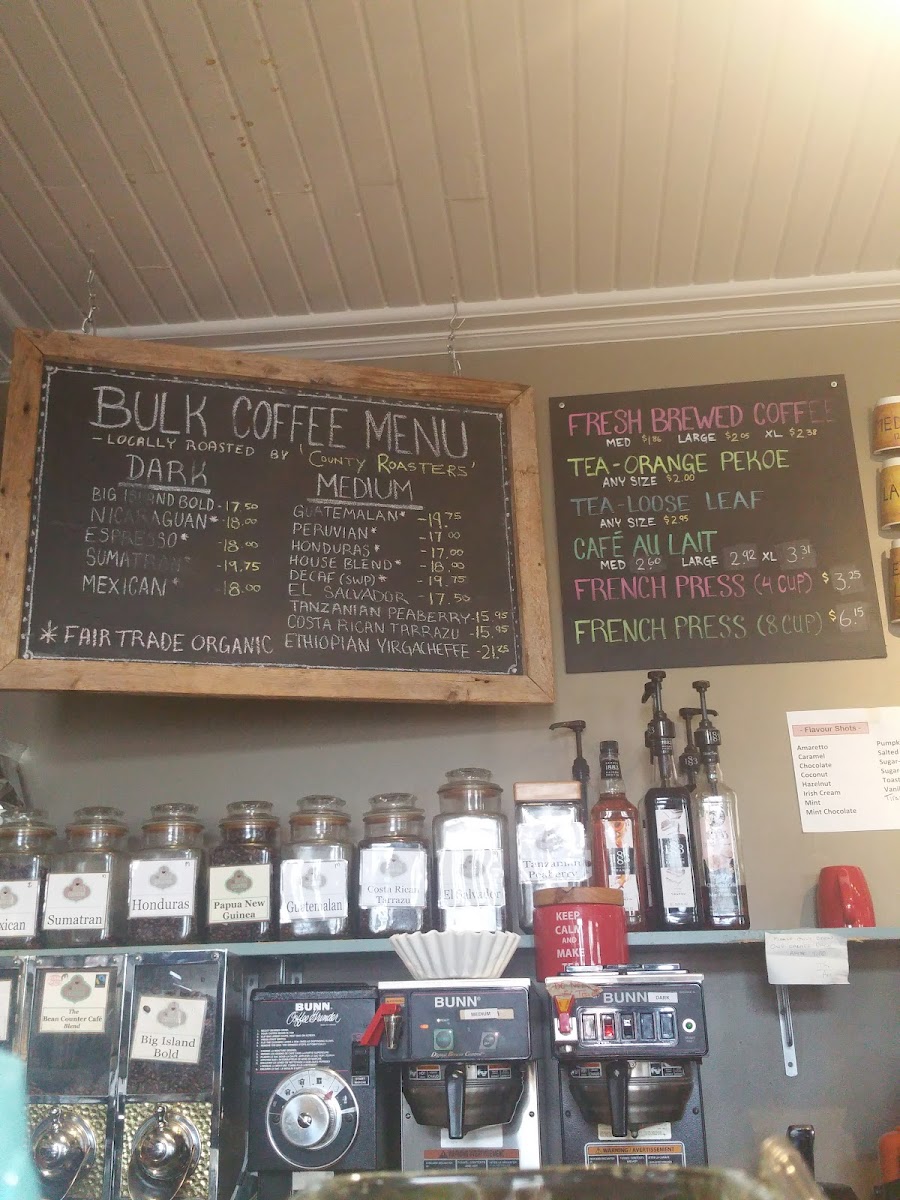 BULK COFFEE MENU
- LOCALLY ROASTED BY 'COUNTY ROASTERS'
DARK
BIG ISLAND BOLD - 17.50
NICARAGUAN* - 18.00
ESPRESSO* - 18.00
SUMATRAN* - 19.75
MEXICAN* - 18.00
* FAIR TRADE ORGANIC
MEDIUM
GUATEMALAN* - 19.75
PERUVIAN* - 17.00
HONDURAS* - 17.00
HOUSE BLEND* - 18.00
DECAF (SWP)* - 19.75
EL SALVADOR - 17.50
TANZANIAN PEABERRY - 15.95
COSTA RICAN TARRAZU - 15.95
ETHIOPIAN YIRGACHEFFE - 21.25
FRESH BREWED COFFEE
MED $1.86 LARGE $2.05 XL $2.38
TEA - ORANGE PEKOE
ANY SIZE $2.00
TEA - LOOSE LEAF
ANY SIZE $2.95
CAFÉ AU LAIT
MED 2.60 LARGE 2.92 XL 3.31
FRENCH PRESS (4 CUP) $3.25
FRENCH PRESS (8 CUP) $6.15
- Flavour Shots -
Amaretto
Caramel
Chocolate
Coconut
Hazelnut
Irish Cream
Mint
Mint Chocolate
Pumpk
Salted
Sugar-
Sugar
Toast
Vani
xican
Sumatran
Honduras
Papua New
Guinea
Guatemalan
Costa Rican
Tarrazu
El Salvador
Tanzanian
Peaberry
KEEP
CALM
AND
MAKE
TEA
The
Bean Counter Café
Blend
Big Island
Bold
BUNN
Coffee Grinder
BUNN
MEDIUM
BUNN
DARK
WARNING / AVERTISSEMENT